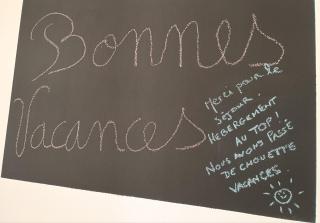 Bonnes
Vacances
Merci pour le
séjour.
HÉBERGEMENT
AU TOP!
NOUS AVONS PASSÉ
DE CHOUETTE
VACANCES